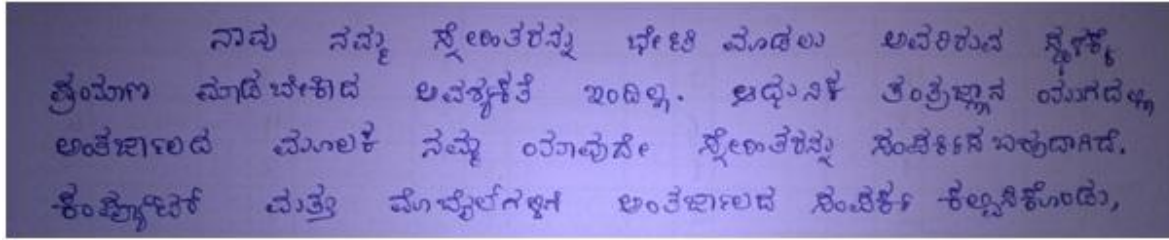 ನಾವು ನಮ್ಮ ಸ್ನೇಹಿತರನ್ನು ಭೇಟಿ ಮಾಡಲು ಅವರಿರುವ ಸ್ಥಳಕ್ಕೆ
ಪ್ರಯಾಣ ಮಾಡಬೇಕಾದ ಅವಶ್ಯಕತೆ ಇಂದಿಲ್ಲ. ಆಧುನಿಕ ತಂತ್ರಜ್ಞಾನ ಯುಗದಲ್ಲಿ
ಅಂತರ್ಜಾಲದ ಮೂಲಕ ನಮ್ಮ ಯಾವುದೇ ಸ್ನೇಹಿತರನ್ನು ಸಂಪರ್ಕಿಸಬಹುದಾಗಿದೆ.
ಕಂಪ್ಯೂಟರ್ ಮತ್ತು ಮೊಬೈಲ್‌ಗಳಿಗೆ ಅಂತರ್ಜಾಲದ ಸಂಪರ್ಕ ಕಲ್ಪಿಸಿಕೊಂಡು,